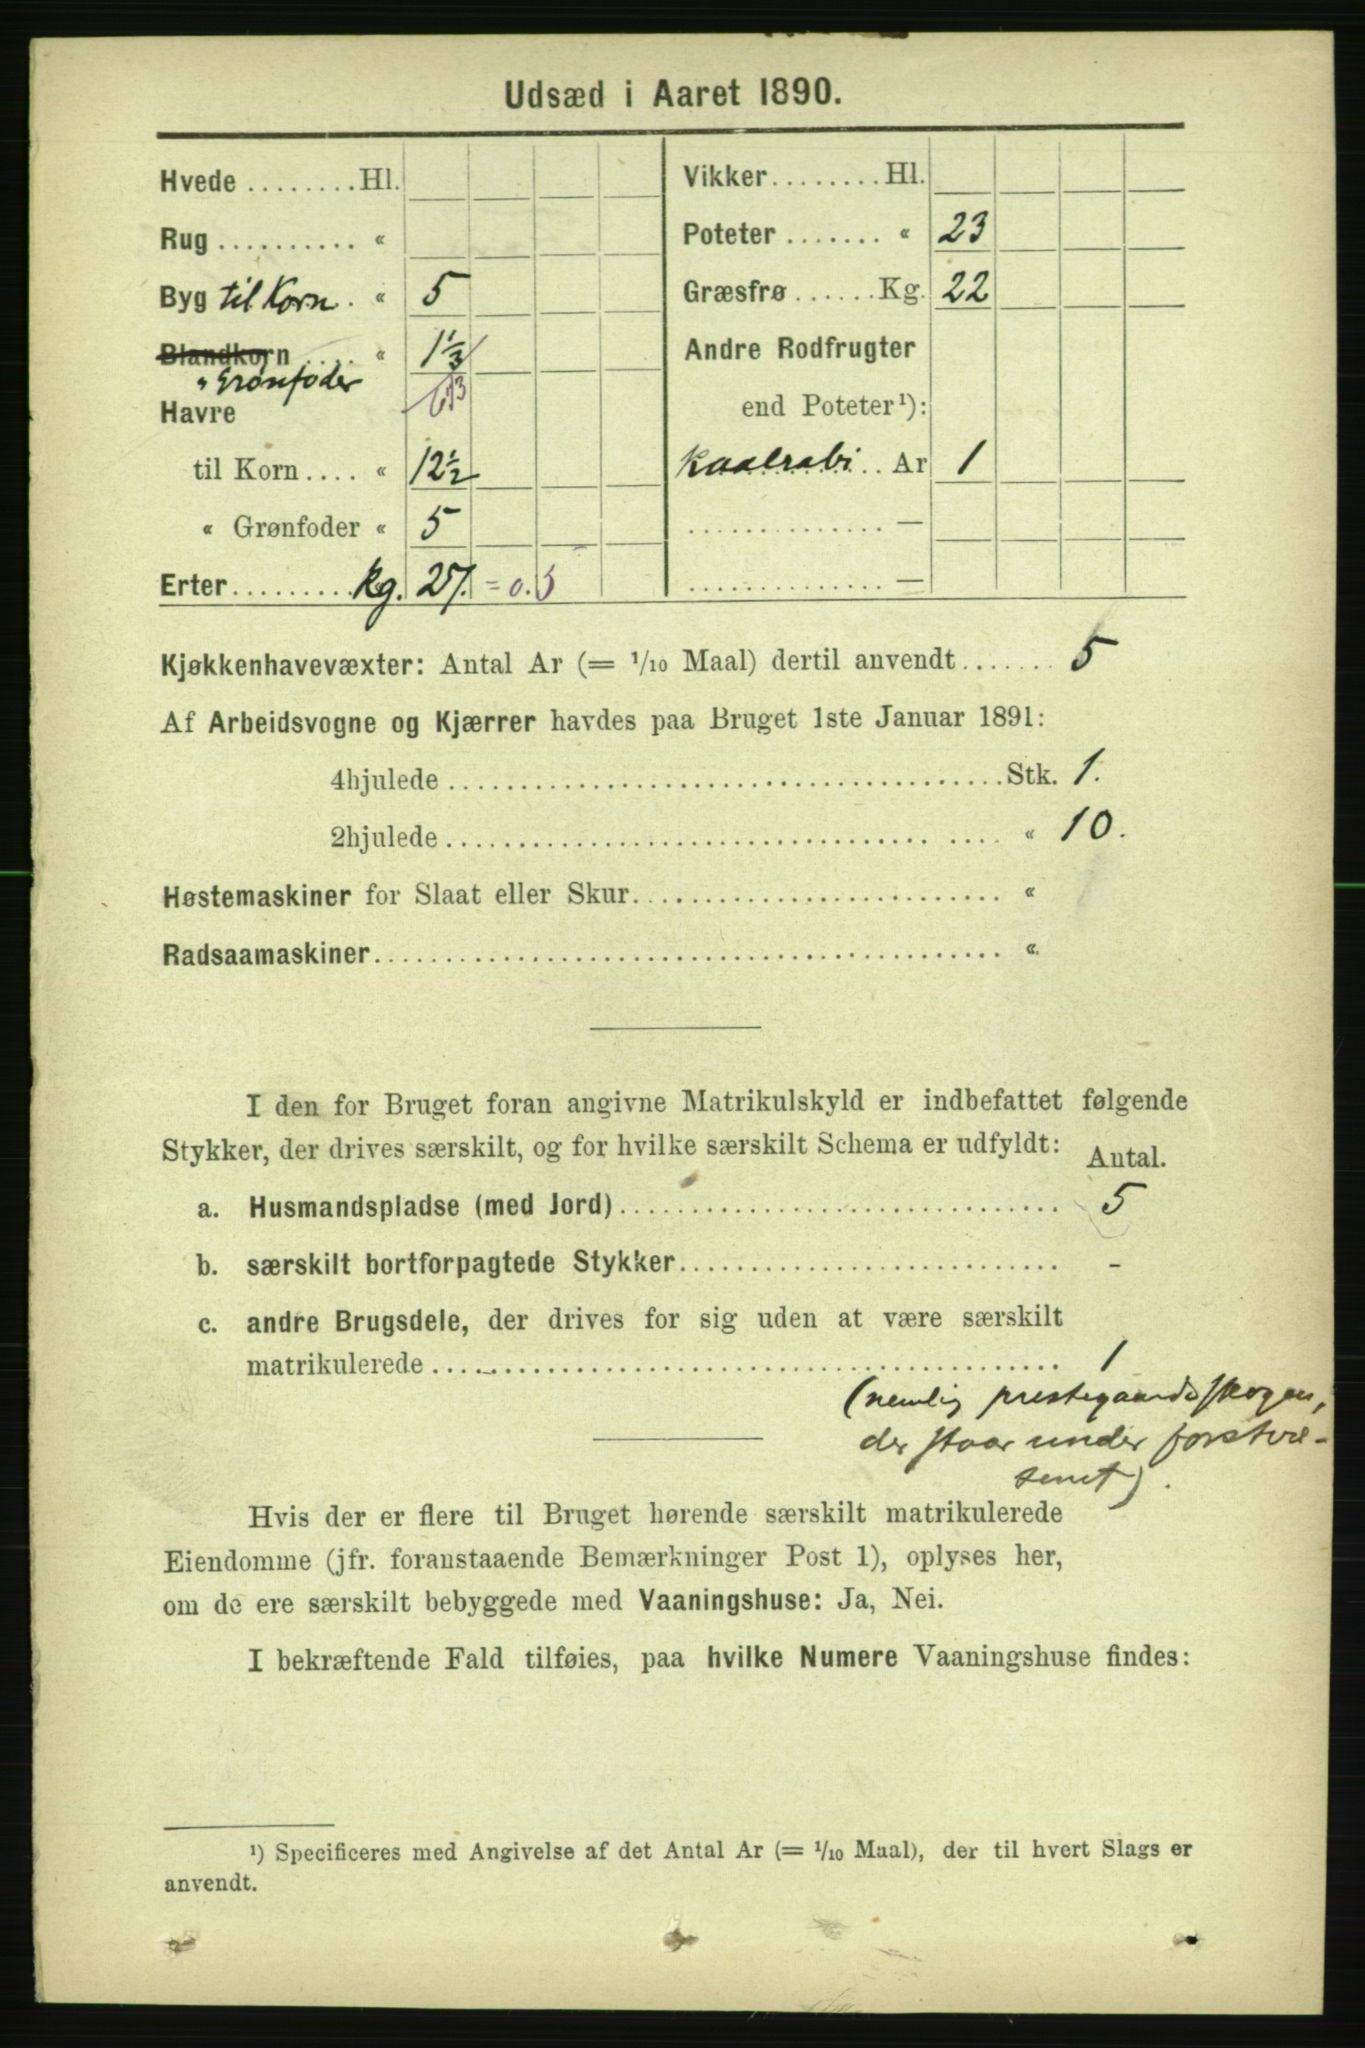 Udsæd i Aaret 1890.
Hvede ........ Hl.
Rug .......... «
Byg til Korn . « 5
Blandkorn .... « 1 1/3
" Grønfoder
Havre
til Korn .... « 12 1/2
« Grønfoder « 5
Erter ......... kg. 25. = 0.3
Vikker ........ Hl.
Poteter ....... « 23
Græsfrø ...... Kg. 22
Andre Rodfrugter
end Poteter¹):
Kaalrabi .. Ar 1
.............. —
.............. —
Kjøkkenhavevæxter: Antal Ar (= 1/10 Maal) dertil anvendt ....... 5
Af Arbeidsvogne og Kjærrer havdes paa Bruget 1ste Januar 1891:
4hjulede ....................................... Stk. 1.
2hjulede ....................................... « 10.
Høstemaskiner for Slaat eller Skur .......................... «
Radsaamaskiner ............................................ «
I den for Bruget foran angivne Matrikulskyld er indbefattet følgende
Stykker, der drives særskilt, og for hvilke særskilt Schema er udfyldt: Antal.
a. Husmandspladse (med Jord) ............................... 5
b. særskilt bortforpagtede Stykker ........................... -
c. andre Brugsdele, der drives for sig uden at være særskilt
matrikulerede ............................................ 1
(nemlig prestegaardsskogen,
der staar under forstvæ-
senet).
Hvis der er flere til Bruget hørende særskilt matrikulerede
Eiendomme (jfr. foranstaaende Bemærkninger Post 1), oplyses her,
om de ere særskilt bebyggede med Vaaningshuse: Ja, Nei.
I bekræftende Fald tilføies, paa hvilke Numere Vaaningshuse findes:
¹) Specificeres med Angivelse af det Antal Ar (= 1/10 Maal), der til hvert Slags er
anvendt.